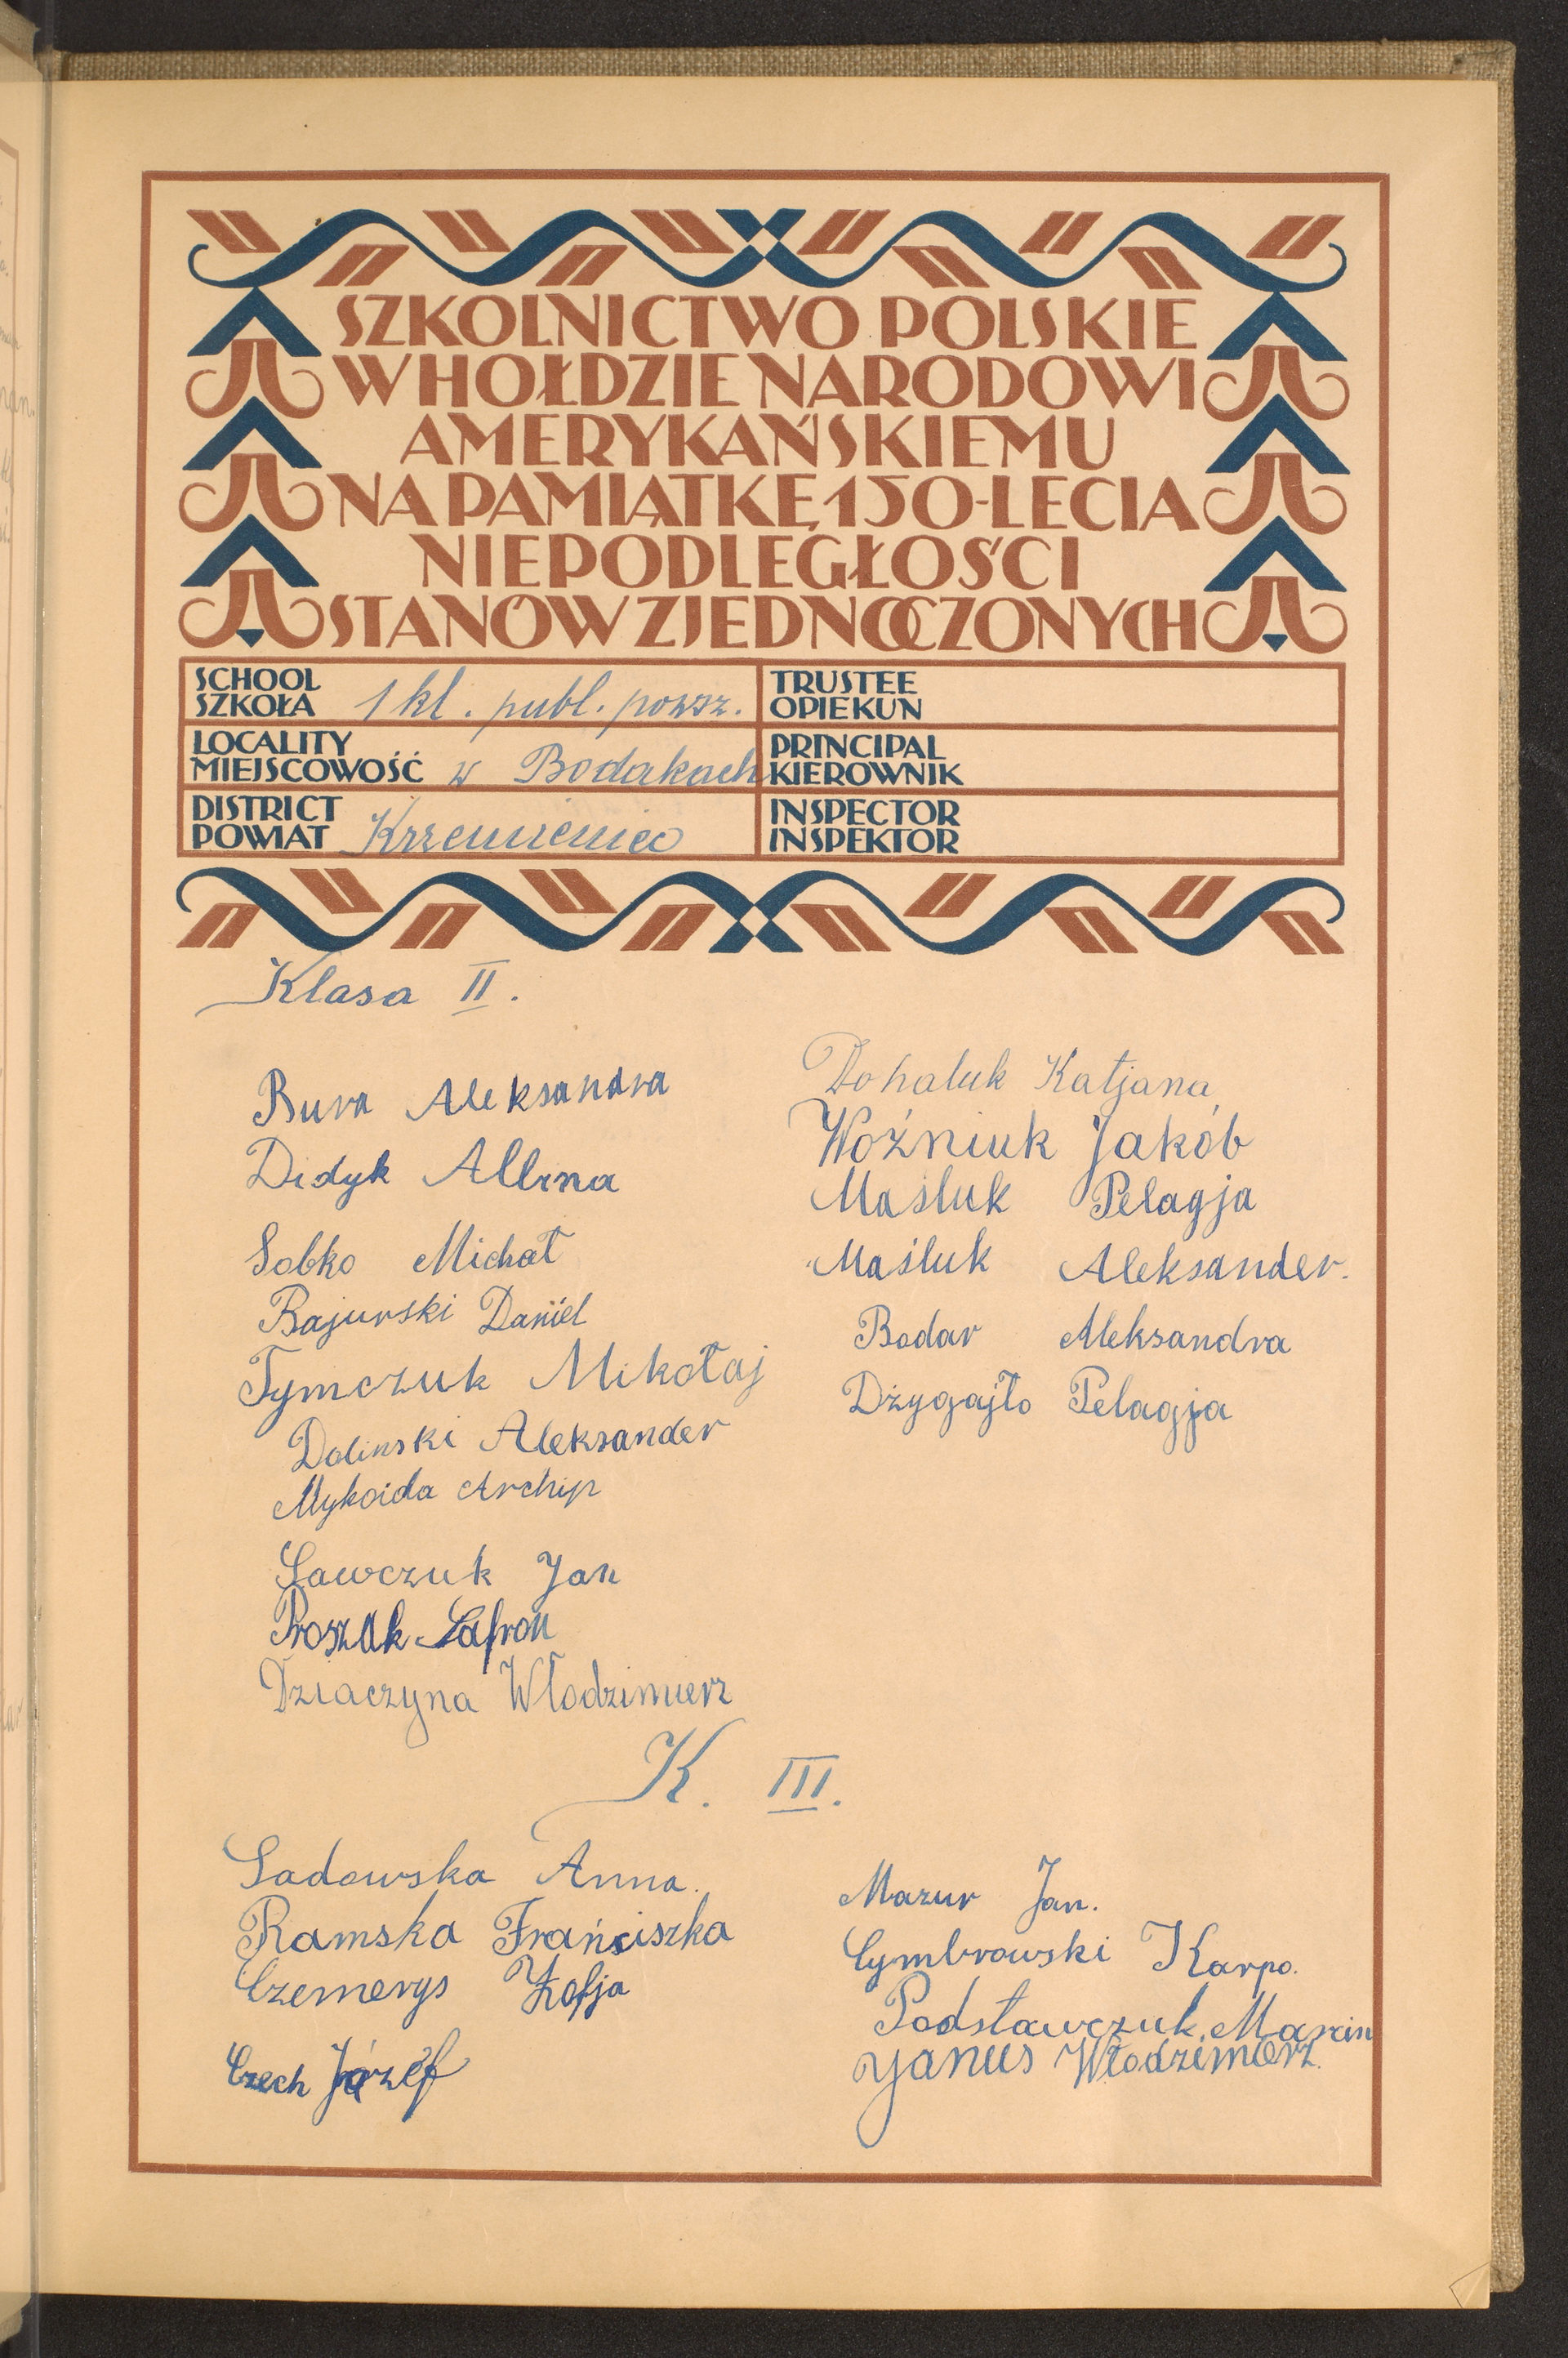 SZKOLNICTWO POLSKIE
W HOŁDZIE NARODOWI
AMERYKAŃSKIEMU
NA PAMIĄTKĘ 150-LECIA
NIEPODLEGŁOŚCI
STANÓW ZJEDNOCZONYCH
SCHOOL
SZKOŁA 1 kl. publ. powsz.
TRUSTEE
OPIEKUN
LOCALITY
MIEJSCOWOŚĆ w Bodakach
PRINCIPAL
KIEROWNIK
DISTRICT
POWIAT Krzemieniec
INSPECTOR
INSPEKTOR
Klasa II.
Bura Aleksandra
Didyk
Sobko Michał
Bajurski Daniel
Tymczuk Mikołaj
Dolinski Aleksander
Mykoida Archip
Sawczuk Jan
Proszak Safron
Dziaczyna Włodzimierz
Dohaluk Katjana
Woźniuk Jakób
Maśluk Pelagja
Maśluk Aleksander.
Bodar Aleksandra
Dżygajło Pelagja
K. III.
Sadowska Anna.
Ramska Frańciszka
Czemerys Zofja
Czech Józéf
Mazur Jan.
Cymbrowski Karpo.
Podstawczuk Marcin
Yanus Włodzimierz.